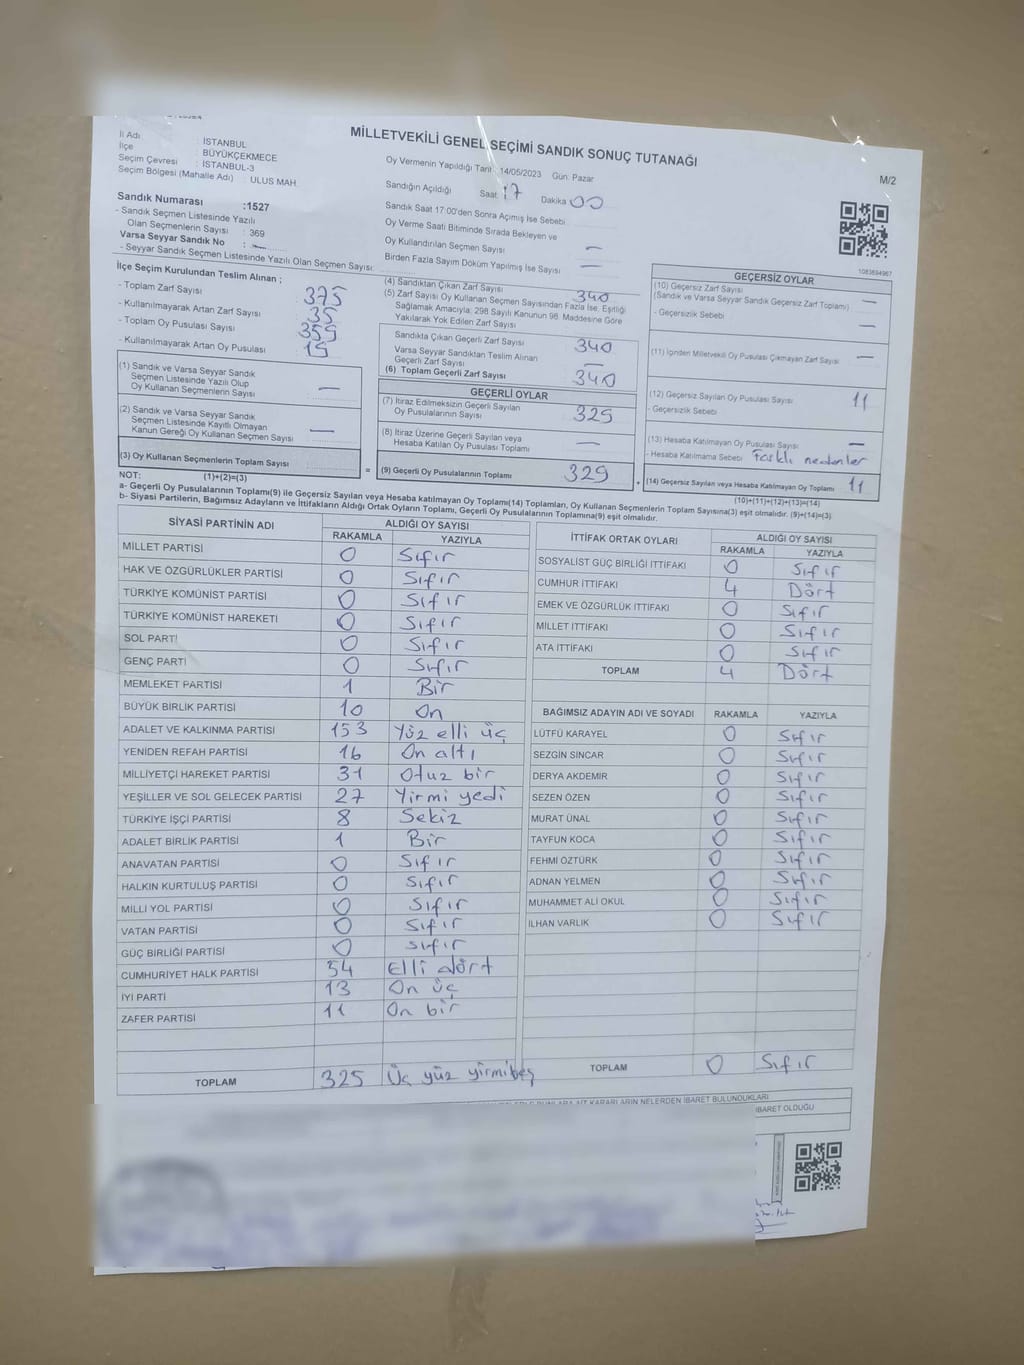 MİLLETVEKİLİ GENEL SEÇİMİ SANDIK SONUÇ TUTANAĞI
M/2
İl Adı : İSTANBUL
İlçe : BÜYÜKÇEKMECE
Seçim Çevresi : İSTANBUL-3
Seçim Bölgesi (Mahalle Adı) : ULUS MAH.
Oy Vermenin Yapıldığı Tarih : 14/05/2023 Gün: Pazar
Sandığın Açıldığı Saat : 17 Dakika 00
Sandık Saat 17:00'den Sonra Açımış İse Sebebi
Oy Verme Saati Bitiminde Sırada Bekleyen ve
Oy Kullandırılan Seçmen Sayısı —
Birden Fazla Sayım Döküm Yapılmış İse Sayısı —
Sandık Numarası :1527
- Sandık Seçmen Listesinde Yazılı
Olan Seçmenlerin Sayısı : 369
Varsa Seyyar Sandık No : —
- Seyyar Sandık Seçmen Listesinde Yazılı Olan Seçmen Sayısı:
İlçe Seçim Kurulundan Teslim Alınan :
- Toplam Zarf Sayısı 375
- Kullanılmayarak Artan Zarf Sayısı 35
- Toplam Oy Pusulası Sayısı 359
- Kullanılmayarak Artan Oy Pusulası 19
(1) Sandık ve Varsa Seyyar Sandık
Seçmen Listesinde Yazılı Olup
Oy Kullanan Seçmenlerin Sayısı —
(2) Sandık ve Varsa Seyyar Sandık
Seçmen Listesinde Kayıtlı Olmayan
Kanun Gereği Oy Kullanan Seçmen Sayısı —
(3) Oy Kullanan Seçmenlerin Toplam Sayısı
(1)+(2)=(3)
(4) Sandıktan Çıkan Zarf Sayısı 340
(5) Zarf Sayısı Oy Kullanan Seçmen Sayısından Fazla İse, Eşitliği
Sağlamak Amacıyla; 298 Sayılı Kanunun 98. Maddesine Göre
Yakılarak Yok Edilen Zarf Sayısı
Sandıkta Çıkan Geçerli Zarf Sayısı 340
Varsa Seyyar Sandıktan Teslim Alınan
Geçerli Zarf Sayısı —
(6) Toplam Geçerli Zarf Sayısı 340
GEÇERLİ OYLAR
(7) İtiraz Edilmeksizin Geçerli Sayılan
Oy Pusulalarının Sayısı 329
(8) İtiraz Üzerine Geçerli Sayılan veya
Hesaba Katılan Oy Pusulası Toplamı —
= (9) Geçerli Oy Pusulalarının Toplamı 329
GEÇERSİZ OYLAR
1083694967
(10) Geçersiz Zarf Sayısı
(Sandık ve Varsa Seyyar Sandık Geçersiz Zarf Toplamı) —
- Geçersizlik Sebebi —
(11) İçinden Milletvekili Oy Pusulası Çıkmayan Zarf Sayısı —
(12) Geçersiz Sayılan Oy Pusulası Sayısı 11
- Geçersizlik Sebebi
(13) Hesaba Katılmayan Oy Pusulası Sayısı —
- Hesaba Katılmama Sebebi Farklı nedenler
+ (14) Geçersiz Sayılan veya Hesaba Katılmayan Oy Toplamı 11
(10)+(11)+(12)+(13)=(14)
NOT:
a- Geçerli Oy Pusulalarının Toplamı(9) ile Geçersiz Sayılan veya Hesaba katılmayan Oy Toplamı(14) Toplamları, Oy Kullanan Seçmenlerin Toplam Sayısına(3) eşit olmalıdır. (9)+(14)=(3)
b- Siyasi Partilerin, Bağımsız Adayların ve İttifakların Aldığı Ortak Oyların Toplamı, Geçerli Oy Pusulalarının Toplamına(9) eşit olmalıdır.
SİYASİ PARTİNİN ADI ALDIĞI OY SAYISI
RAKAMLA YAZIYLA
MİLLET PARTİSİ 0 Sıfır
HAK VE ÖZGÜRLÜKLER PARTİSİ 0 Sıfır
TÜRKİYE KOMÜNİST PARTİSİ 0 Sıfır
TÜRKİYE KOMÜNİST HAREKETİ 0 Sıfır
SOL PARTİ 0 Sıfır
GENÇ PARTİ 0 Sıfır
MEMLEKET PARTİSİ 1 Bir
BÜYÜK BİRLİK PARTİSİ 10 On
ADALET VE KALKINMA PARTİSİ 153 Yüz elli üç
YENİDEN REFAH PARTİSİ 16 On altı
MİLLİYETÇİ HAREKET PARTİSİ 31 Otuz bir
YEŞİLLER VE SOL GELECEK PARTİSİ 27 Yirmi yedi
TÜRKİYE İŞÇİ PARTİSİ 8 Sekiz
ADALET BİRLİK PARTİSİ 1 Bir
ANAVATAN PARTİSİ 0 Sıfır
HALKIN KURTULUŞ PARTİSİ 0 Sıfır
MİLLİ YOL PARTİSİ 0 Sıfır
VATAN PARTİSİ 0 Sıfır
GÜÇ BİRLİĞİ PARTİSİ 0 sıfır
CUMHURİYET HALK PARTİSİ 54 Elli dört
İYİ PARTİ 13 On üç
ZAFER PARTİSİ 11 On bir
TOPLAM 325 Üç yüz yirmibeş
İTTİFAK ORTAK OYLARI ALDIĞI OY SAYISI
RAKAMLA YAZIYLA
SOSYALİST GÜÇ BİRLİĞİ İTTİFAKI 0 Sıfır
CUMHUR İTTİFAKI 4 Dört
EMEK VE ÖZGÜRLÜK İTTİFAKI 0 Sıfır
MİLLET İTTİFAKI 0 Sıfır
ATA İTTİFAKI 0 Sıfır
TOPLAM 4 Dört
BAĞIMSIZ ADAYIN ADI VE SOYADI RAKAMLA YAZIYLA
LÜTFÜ KARAYEL 0 Sıfır
SEZGİN SİNCAR 0 Sıfır
DERYA AKDEMİR 0 Sıfır
SEZEN ÖZEN 0 Sıfır
MURAT ÜNAL 0 Sıfır
TAYFUN KOCA 0 Sıfır
FEHMİ ÖZTÜRK 0 Sıfır
ADNAN YELMEN 0 Sıfır
MUHAMMET ALİ OKUL 0 Sıfır
İLHAN VARLIK 0 Sıfır
TOPLAM 0 Sıfır
KARARLARIN NELERDEN İBARET BULUNDUKLARI
İBARET OLDUĞU